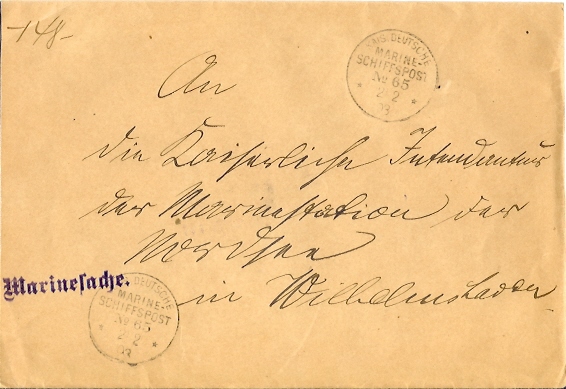 -148-
KAIS. DEUTSCHE
MARINE-
SCHIFFSPOST
No 65
* 2 2 *
03
An
die Kaiserliche Intendantur
der Marinestation der
Nordsee
in Wilhelmshaven
Marinesache.
KAIS. DEUTSCHE
MARINE-
SCHIFFSPOST
No 65
* 2 2 *
03